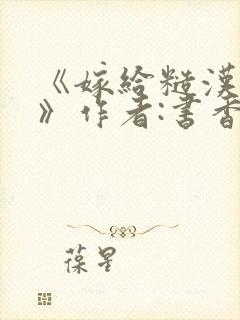 《嫁给糙漢
》作者:書香
葆星